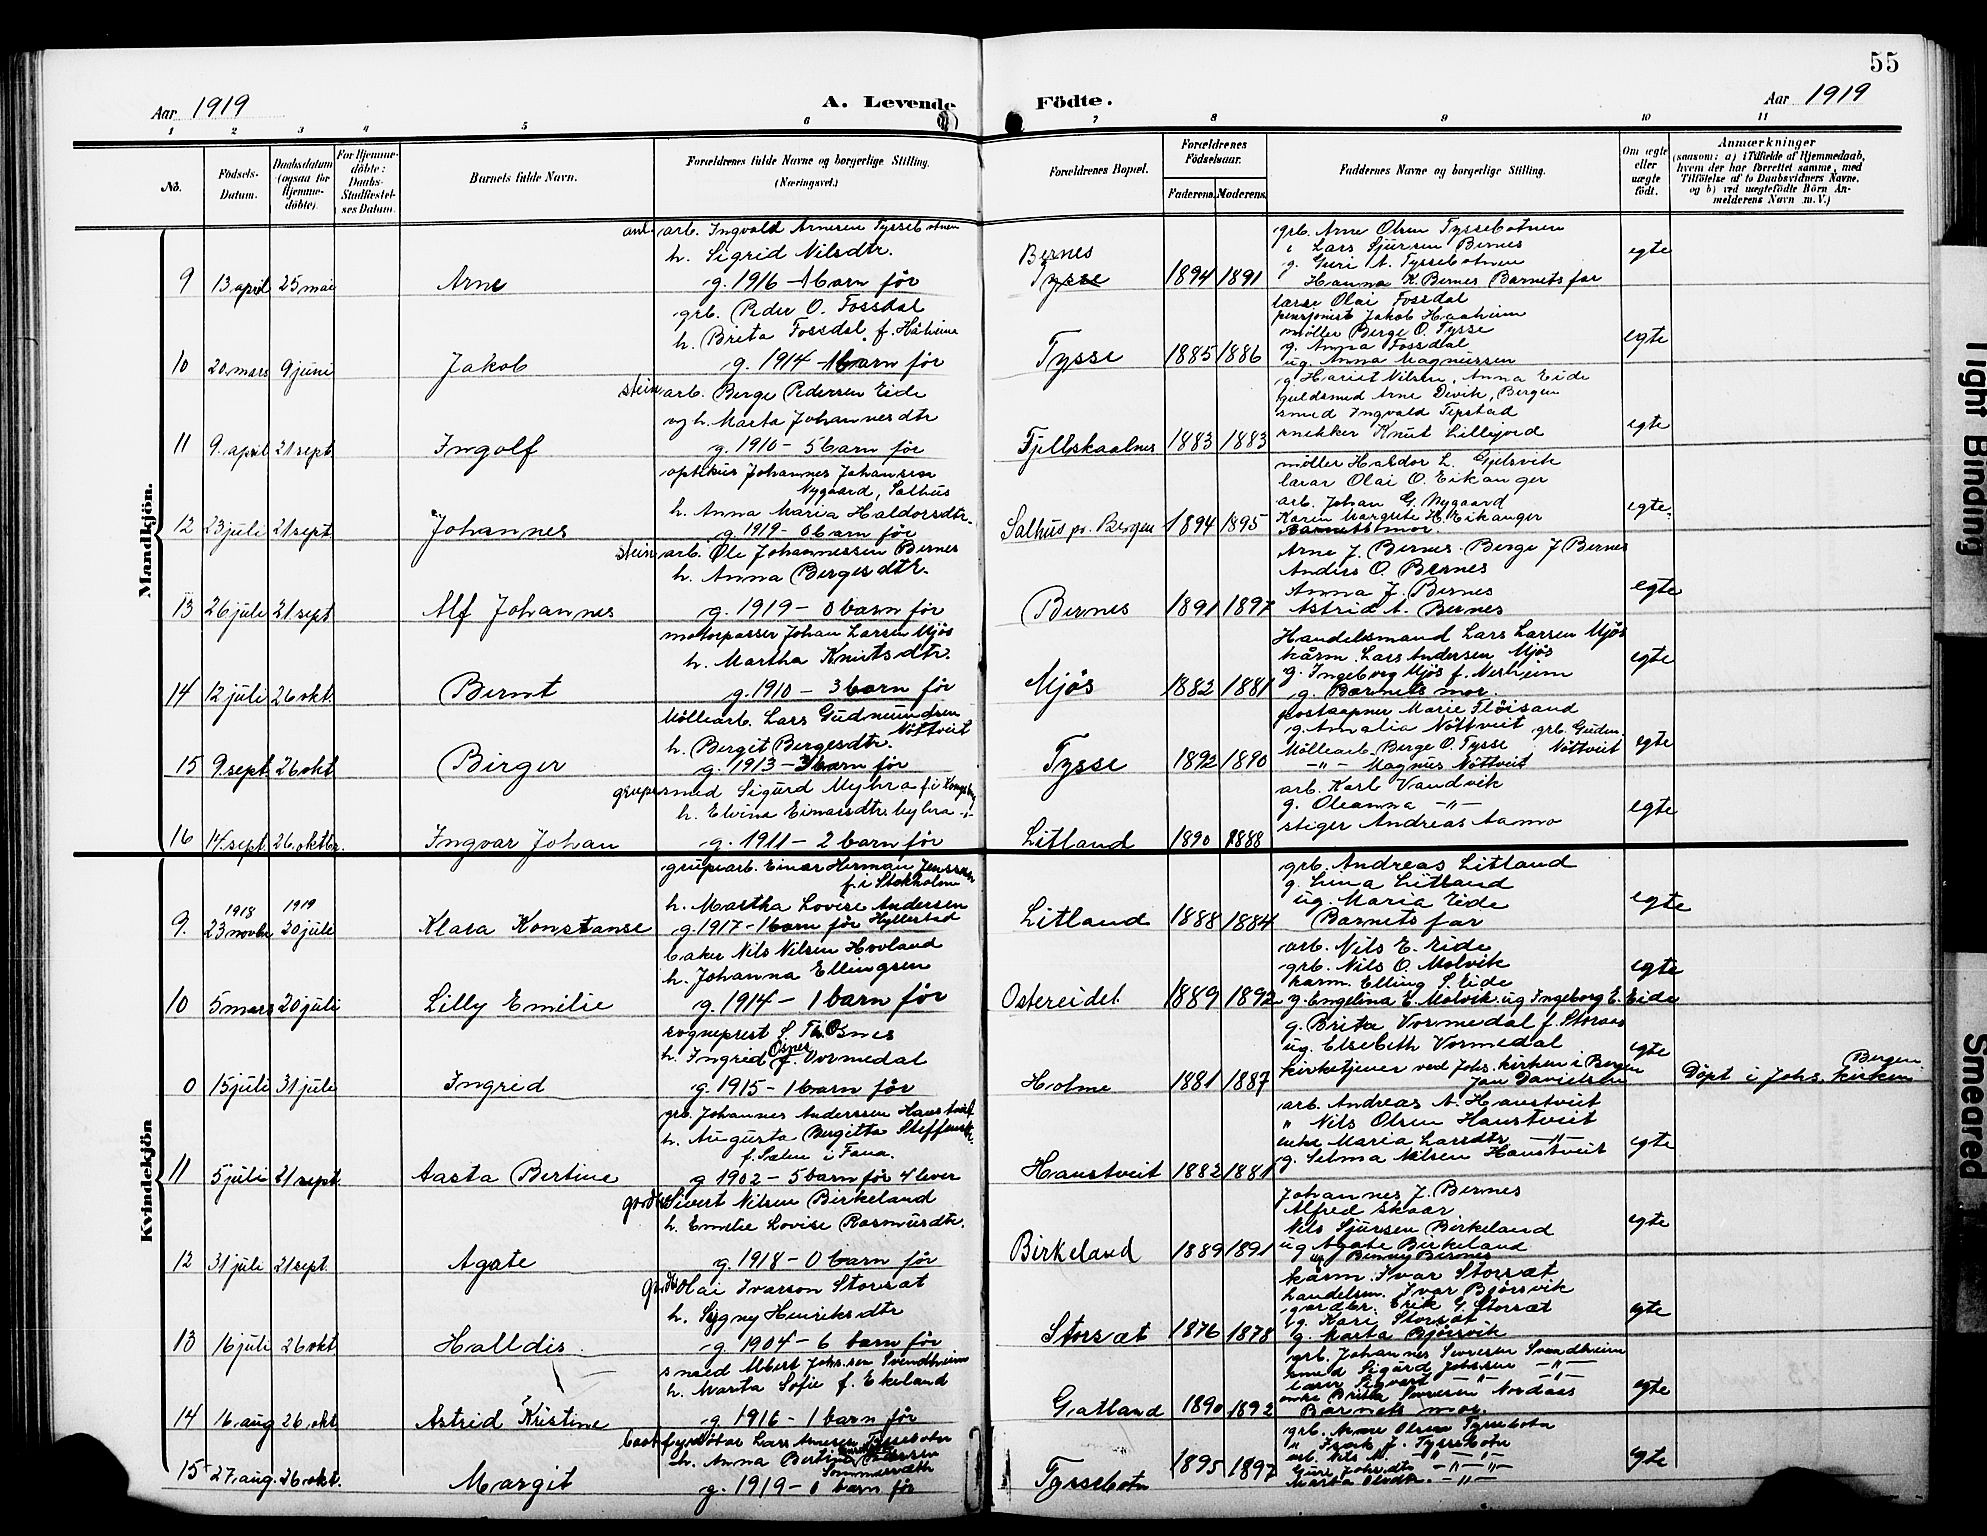 55
Aar 1919
A. Levende Födte.
Aar 1919
1 2 3 4 5 6 7 8 9 10 11
No.
Födsels-Datum.
Daabsdatum (ogsaa for Hjemme-döbte).
For Hjemme-döbte: Daabs-Stadfæstel-ses Datum.
Barnets fulde Navn.
Forældrenes fulde Navne og borgerlige Stilling.
(Næringsvei.)
Forældrenes Bopæl.
Forældrenes Födselsaar.
Faderens. Moderens.
Faddernes Navne og borgerlige Stilling.
Om ægte eller uægte födt.
Anmærkninger
(saasom: a) i Tilfælde af Hjemmedaab,
hvem der har forrettet samme, med
Tilföielse af to Daabsvidners Navne,
og b) ved uægtefödte Börn An-
melderens Navn m. V.)
Mandkjön.
9 13 april 25 mai Arne
arb. Ingvald Arnesen Tyssebotnen
h. Sigrid Nilsdtr.
g. 1916 - 1 barn før
Bernes
Tysse 1894 1891
grb. Arne Olsen Tyssebotnen
" Lars Sjursen Bernes
g. Guri A. Tyssebotnen
Hanna K. Bernes Barnets far
egte
10 20 mars 9 juni Jakob
grb. Peder O. Fossdal
h. Brita Fossdal f. Håheim
g. 1914 - 1 barn før
Tysse 1885 1886
lærar Olai Fossdal
pensjonist Jakob Haaheim
møller Berge O. Tysse
g. Anna Fossdal
ug. Anna Magnussen
egte
11 9. april 21 sept Ingolf
stein arb. Berge Pedersen Eide
og h. Marta Johannesdtr
g. 1910 - 5 barn før
Fjellskaalnes 1883 1883
g Hariet Nilsen, Anna Eide
guldsmed Arne Devik, Bergen
smed Ingvald Tepstad
snekker Knut Lillejord
egte
12 23 juli 21 sept Johannes
optikus Johannes Johansen
Nygaard, Salhus
h. Anna Maria Haldorsdtr.
g. 1919 - 0 barn før
Salhus pr. Bergen 1894 1895
møller Haldor L. Gjelsvik
lærar Olai O. Eikanger
arb. Johan G. Nygaard
Karen Margrete H. Eikanger
Barnets mor
egte
13 26 juli 21 sept Alf Johannes
stein arb. Ole Johannessen Bernes
h. Anna Bergesdtr.
g. 1919 - 0 barn før
Bernes 1891 1897
Arne J. Bernes. Berge J Bernes
Anders O. Bernes
Anna J. Bernes
Astrid A. Bernes
egte
14 12 juli 26 okt. Bernt
motorpasser Johan Larsen Mjøs
h. Martha Knutsdtr.
g. 1910 - 3 barn før
Mjøs 1882 1881
Handelsmand Lars Larsen Mjøs
kårm. Lars Andersen Mjøs
g. Ingeborg Mjøs f. Nesheim
g. Barnets mor.
egte
15 9. sept 26 okt Birger
Møllearb. Lars Gudmundsen
Nöttveit
h. Bergit Bergesdtr.
g. 1913 - 3 barn før
Tysse 1892 1890
postaapner Marie Fløisand
g. Amalia Nöttveit grb. Gudm.
Møllearb. Berge O. Tysse Nöttveit
-"- Magnus Nöttveit
egte
16 14. sept 26. oktbr. Ingvar Johan
grupesmed Sigurd Myhra f. i Kongsbg
h. Elvine Einarsdtr. Myhra
g. 1911 - 2 barn før
Litland 1890 1888
arb. Karl Vandvik
g. Oleanna -"-
stiger Andreas Aamo
egte
Kvindekjön
9. 1918 23 novbr 1919 20 juli Klara Konstanse
grupearb. Einar Herman Jenssen
f. i Stokholm
h. Martha Lovise Andersen
g. 1917 - 1 barn før Hyllestad
Litland 1888 1884
grb. Andreas Litland
g. Lina Litland
ug. Maria Eide
Barnets far
egte
10 5 mars 20 juli Lilly Emilie
baker Nils Nilsen Hovland
h. Johanna Ellingsen
g. 1914 - 1 barn før
Ostereidet 1889 1892
arb. Nils E. Eide
grb. Nils O. Molvik
kårm. Elling S. Eide
g. Engelina E. Molvik. ug Ingeborg E. Eide
egte
0 15 juli 31 juli Ingrid
sogneprest S. Th. Osnes
h. Ingrid Osnes f. Vormedal
g. 1915 - 1 barn før
Holme 1881 1887
g. Brita Vormedal f. Storaas
ug. Elsebeth Vormedal
kirketjener ved Johs. kirken i Bergen
Jan Danielsen
egte
Døpt i Johs. kirken Bergen
11 5 juli 21 sept Aasta Bertine
grb. Johannes Anderssen Haustveit
h. Augusta Bergitta Steffensdtr.
f. Sælen i Fana.
g 1902 - 5 barn før 4 lever
Haustveit 1882 1881
arb. Andreas A. Haustveit
" Nils Olsen Haustveit
enke Maria Larsdtr -"-
g. Selma Nilsen Haustveit
egte
12 31 juli 21 sept Agate
grdbr Sivert Nilsen Birkeland
h. Emelie Lovise Rasmusdtr.
g. 1918 - 0 barn før
Birkeland 1889 1891
Johannes J. Bernes
Alfred Skaar
Nils Sjursen Birkeland
ug Agate Birkeland
ug Benny Bernes
egte
13 16 juli 26 okt Halldis.
grdbr Olai Ivarson Storsæt
h. Sygny Henriksdtr
g 1904 - 6 barn før
Storsæt 1876 1878
kårm. Ivar Storsæt
handelsm. Ivar Bjørsvik
gardbr. Erik G. Storsæt
ug. Kari Storsæt
g. Marta Bjørsvik
egte
14 16 aug 26 okt Astrid Kristine
smed Albert Johs.sen Svendheim
h. Marta Sofie f. Ekeland
g 1916 - 1 barn før
Gatland 1890 1892
grb. Johannes Seversen Svendheim
smed Sigurd Johssen -"-
lærer Sigvart -"-
enke Britha Seversen Nordaas
Barnets mor.
egte
15 27 aug. 26 okt. Margit
baatfyrbøtar Lars Arnesen Tyssebotn
h. Anna Bertine
g. 1919 - 0 barn før
Tyssebotn 1895 1897
grb. Arne Olsen Tyssebotn
" Isak J. Tyssebotn
arb. Nils M. -"-
Guri Johsdtr -"-
Marta Olsdtr. -"-
egte
Tight Binding
Smeared